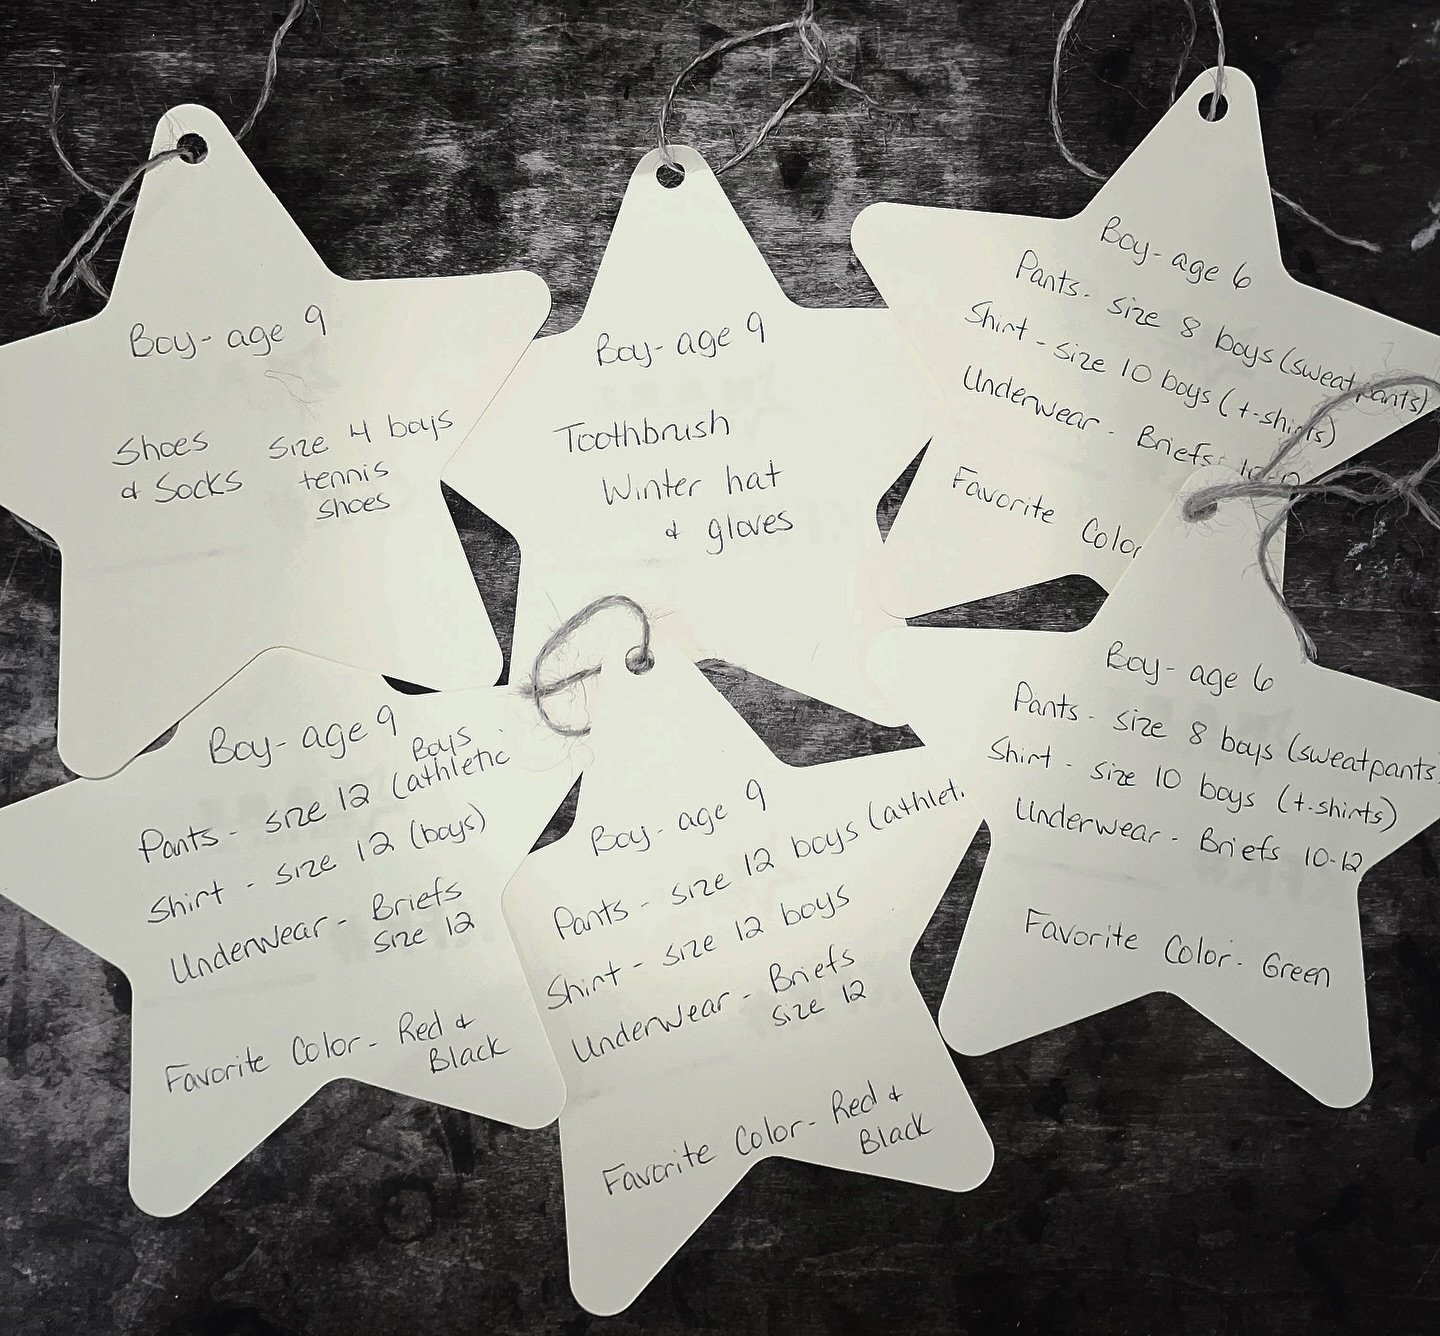 Boy - age 9
Shoes size 4 boys
& Socks tennis
shoes
Boy - age 9
Toothbrush
Winter hat
& gloves
Boy - age 6
Pants - size 8 boys (sweatpants)
Shirt - size 10 boys (t-shirts)
Underwear - Briefs
Favorite Color
Boy - age 9
Boys
Pants - size 12 (athletic
Shirt - size 12 (boys)
Underwear - Briefs
size 12
Favorite Color - Red &
Black
Boy - age 9
Pants - size 12 boys (athleti
Shirt - size 12 boys
Underwear - Briefs
size 12
Favorite Color - Red &
Black
Boy - age 6
Pants - size 8 boys (sweatpants
Shirt - size 10 boys (t-shirts)
Underwear - Briefs 10-12
Favorite Color - Green